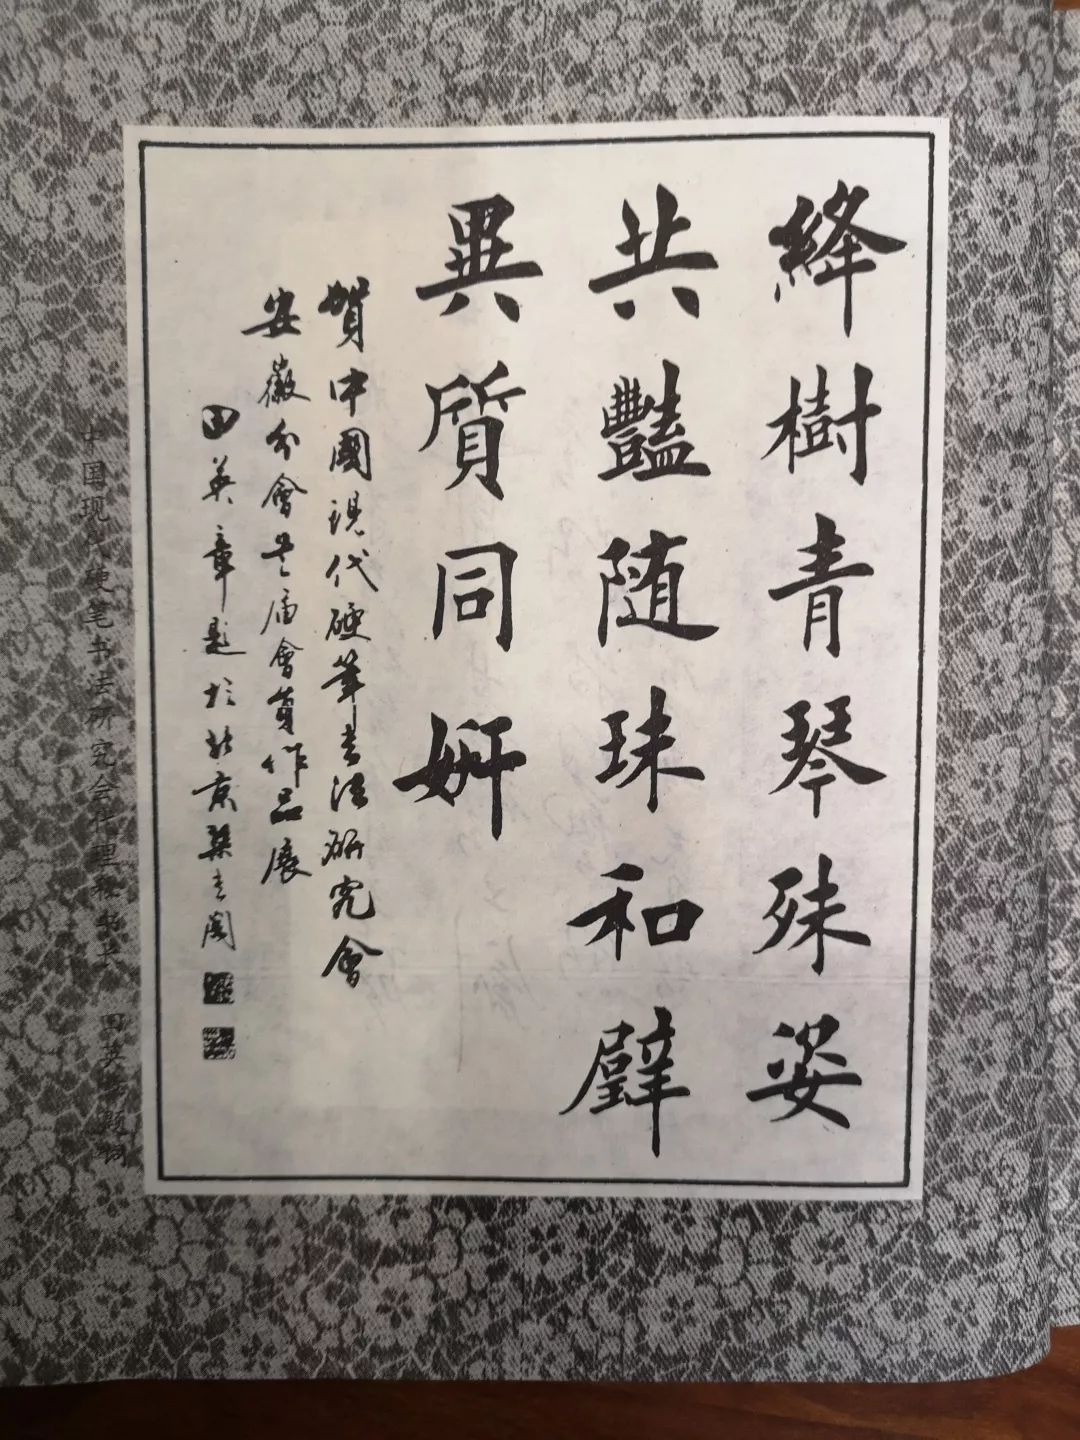 絳樹青琴殊姿
共豔随珠和璧
異質同妍
賀中國現代硬筆書法研究會
安徽分會首届會員作品展
田英章題於北京
中国现代硬笔书法研究会